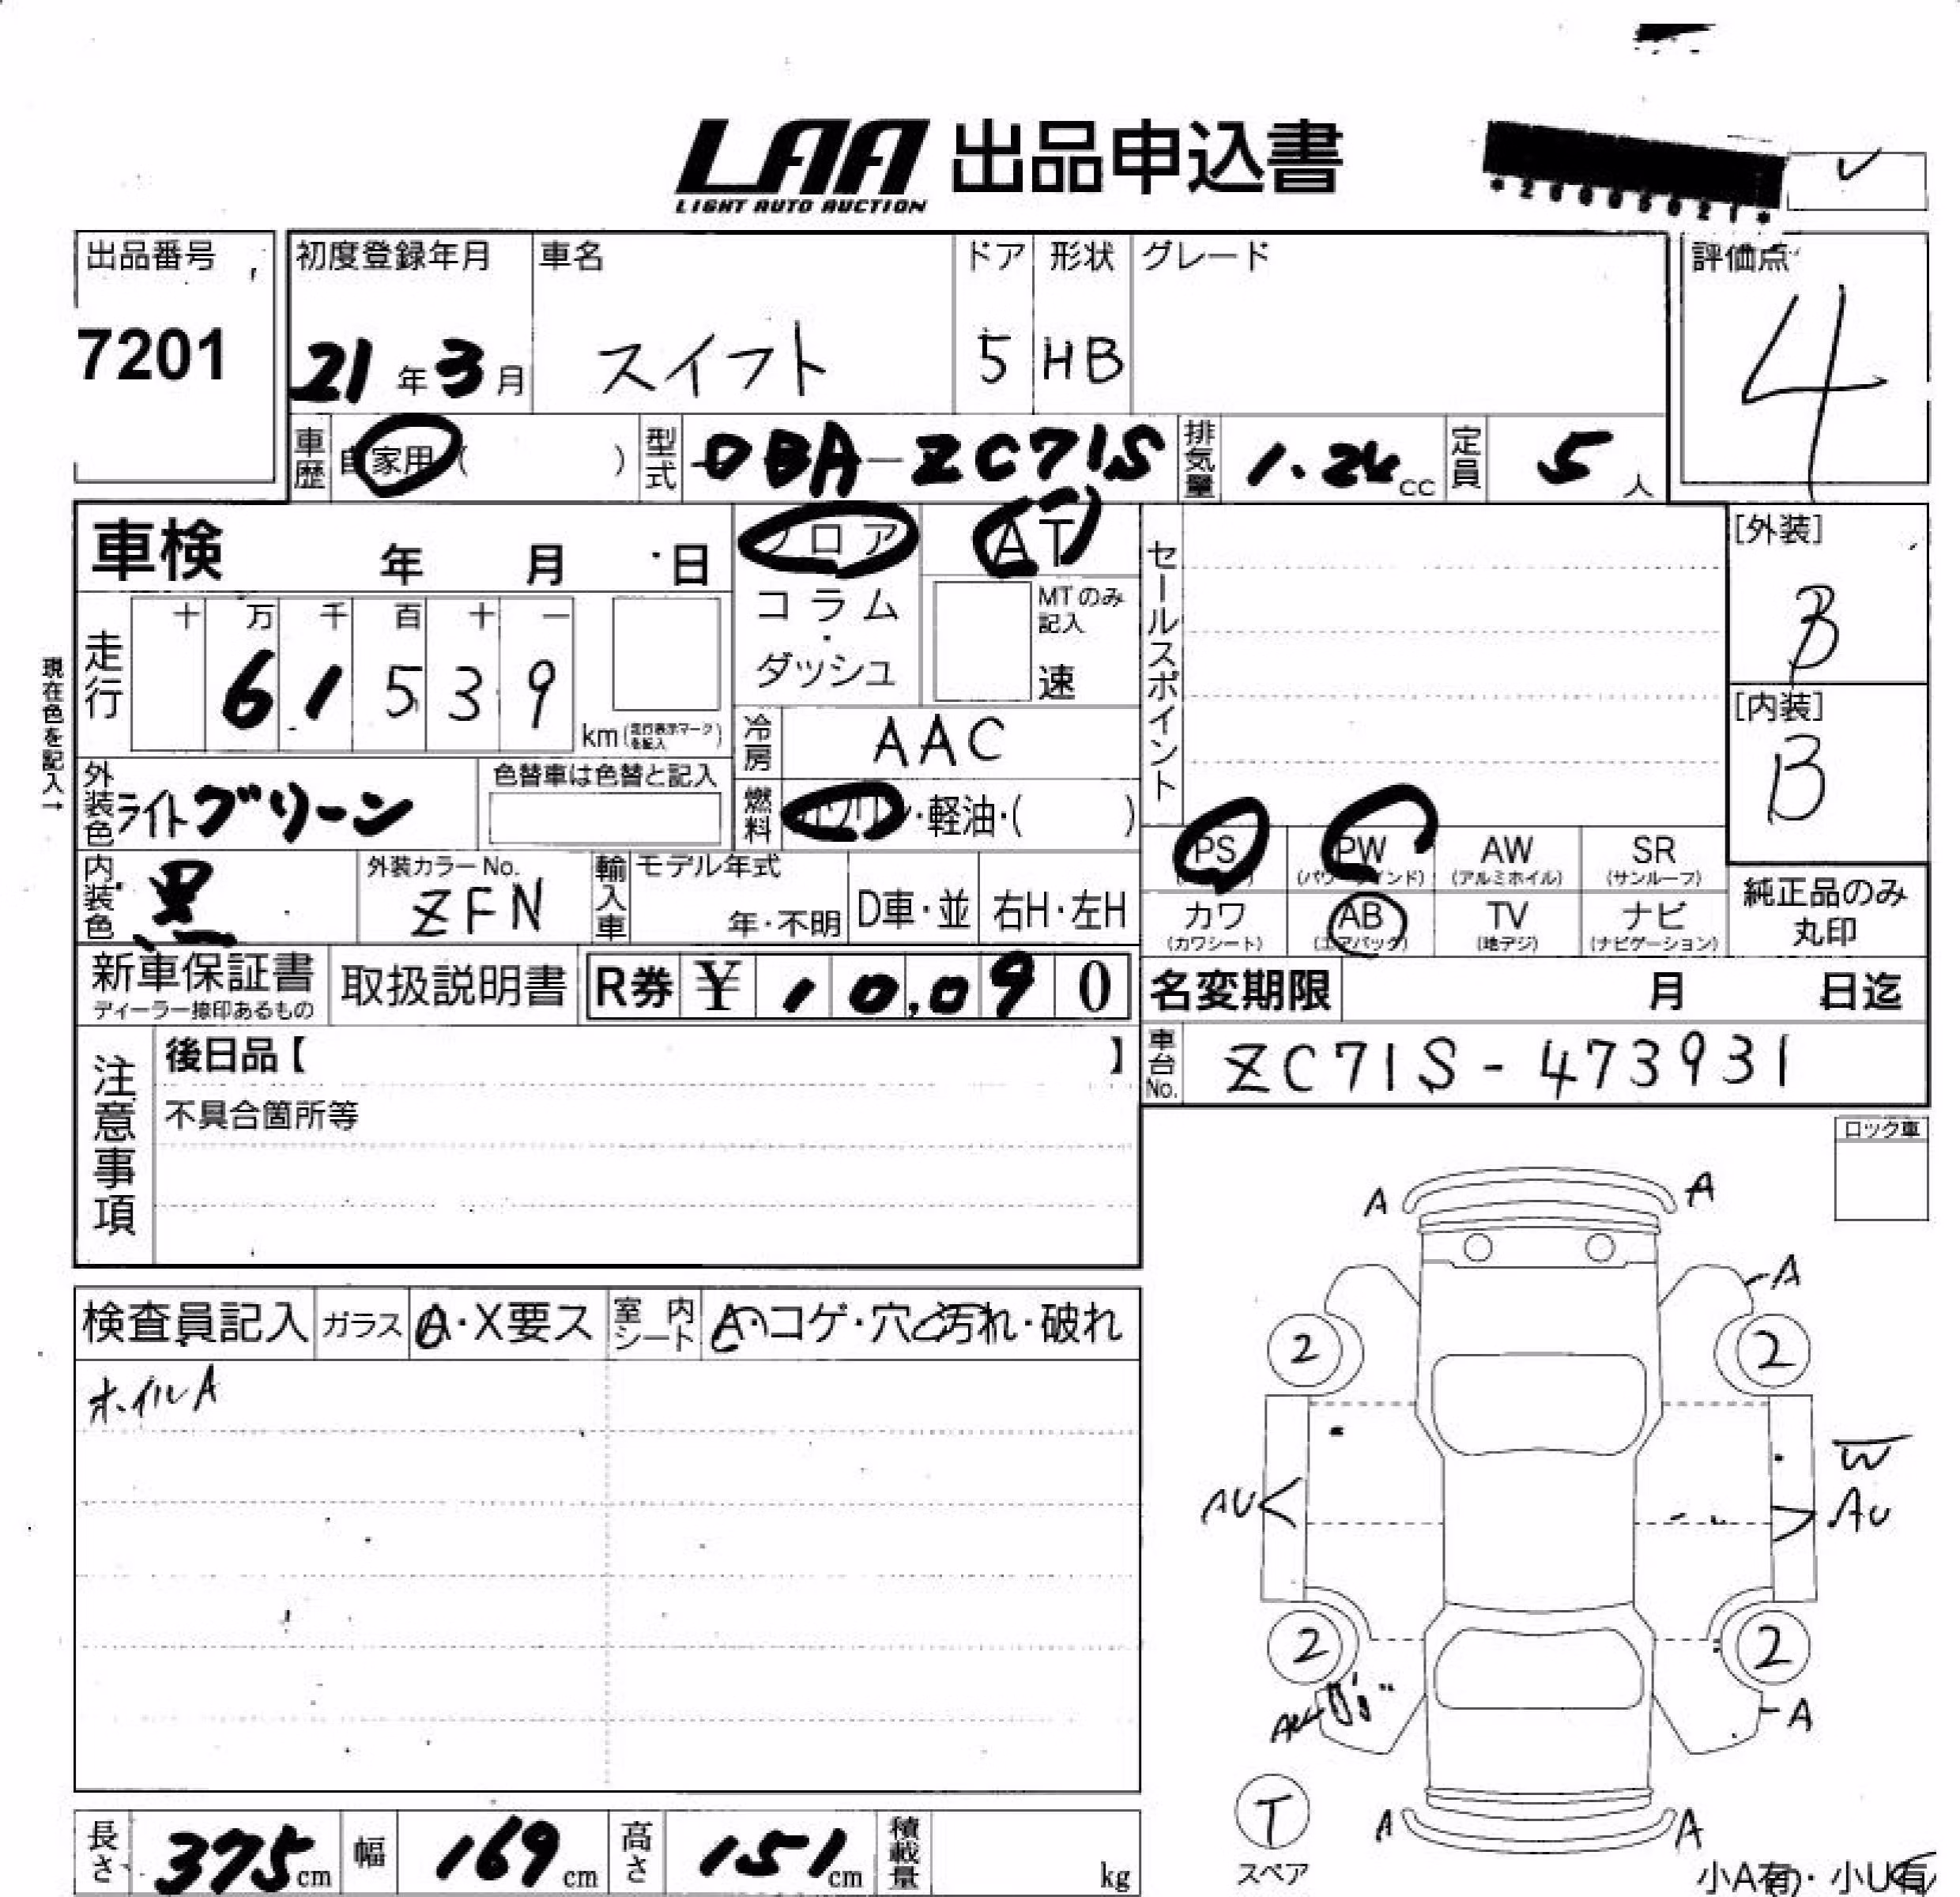 LAA 出品申込書
LIGHT AUTO AUCTION
出品番号
7201
初度登録年月
21年3月
車名
スイフト
ドア
5
形状
HB
グレード
評価点
4
車歴
自家用( )
型式
DBA-ZC71S
排気量
1.2 cc
定員
5人
車検 年 月 日
フロア
コラム・ダッシュ
AT
MTのみ記入
速
セールスポイント
[外装]
B
[内装]
B
現在色を記入→
走行
十 万 千 百 十 一
6 1 5 3 9
km(走行表示マークを記入)
冷房
AAC
燃料
ガソリン・軽油・( )
外装色
ライトグリーン
色替車は色替と記入
内装色
黒
外装カラーNo.
ZFN
輸入車
モデル年式
年・不明
D車・並
右H・左H
PS
PW
(パワーウインド)
AW
(アルミホイル)
SR
(サンルーフ)
カワ
(カワシート)
AB
(エアバック)
TV
(地デジ)
ナビ
(ナビゲーション)
純正品のみ丸印
新車保証書
ディーラー捺印あるもの
取扱説明書
R券 ¥ 10,090
名変期限 月 日迄
車台No.
ZC71S-473931
注意事項
後日品【 】
不具合箇所等
ロック車
検査員記入
ガラス
A・X要ス
室内シート
A・コゲ・穴・汚れ・破れ
ホイルA
A A
A
2 2
W
AU AU
2 2
A
T
スペア
A A
小A有・小U有
長さ 375cm
幅 169cm
高さ 151cm
積載量 kg